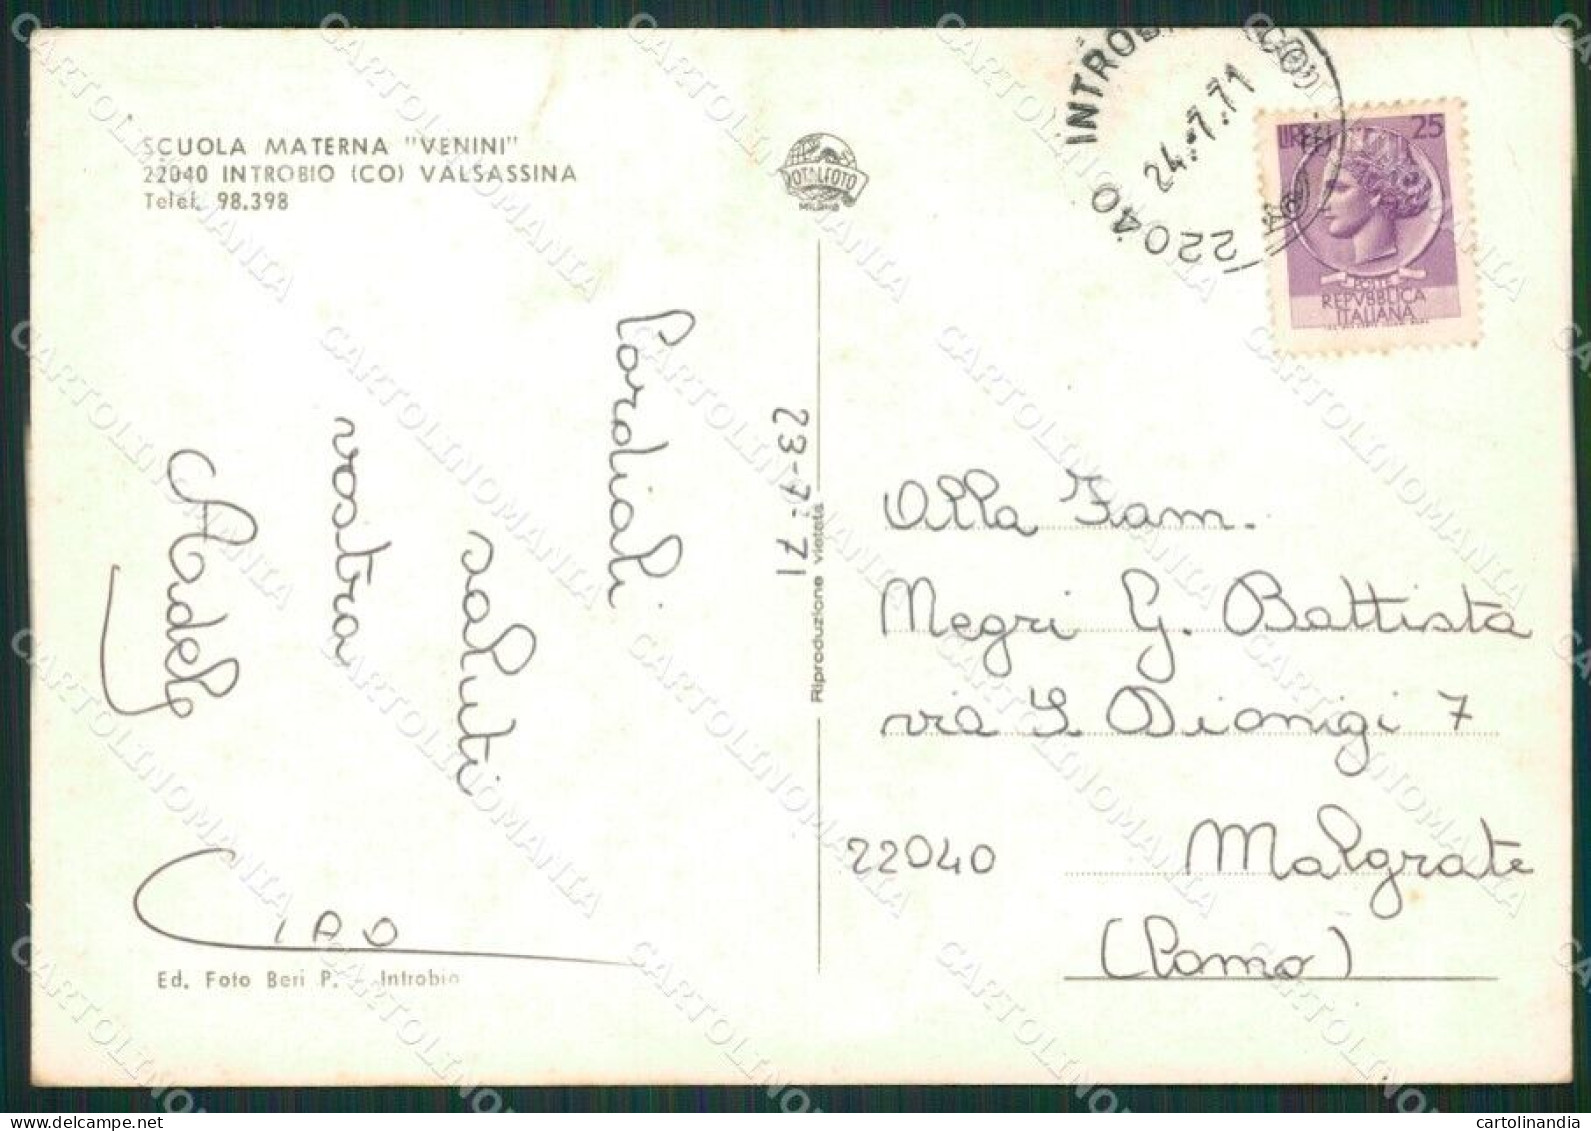 SCUOLA MATERNA "VENINI"
22040 INTROBIO (CO) VALSASSINA
Telef. 98.398
TOTALFOTO
MILANO
22040 INTROBIO (CO)
24.7.71
LIRE 25
POSTE
REPVBBLICA
ITALIANA
23-7-71
Cordiali
saluti
vostra
Adele
CIAO
Riproduzione vietata
Alla Fam.
Negri G. Battista
via S Dionigi 7
22040 Malgrate
(Como)
Ed. Foto Beri P. - Introbio
CARTOLINOMANIA
cartolinandia